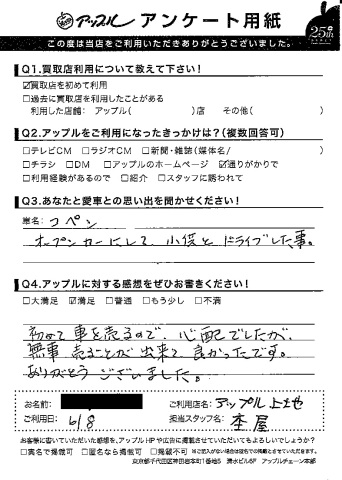 アップル アンケート用紙
25th
この度は当店をご利用いただきありがとうございました。
Q1.買取店利用について教えて下さい!
☑買取店を初めて利用
□過去に買取店を利用したことがある
利用した店舗: アップル( )店 その他( )
Q2.アップルをご利用になったきっかけは?(複数回答可)
□テレビCM □ラジオCM □新聞・雑誌(媒体名/ )
□チラシ □DM □アップルのホームページ ☑通りがかりで
□利用経験があるので □紹介 □スタッフに誘われて
Q3.あなたと愛車との思い出を聞かせください!
車名: コペン
オープンカーにして、小役と ドライブした事。
Q4.アップルに対する感想をぜひお書きください!
□大満足 ☑満足 □普通 □もう少し □不満
初めて車を売るので、心配でしたが、
無事 売ることが出来て 良かったです。
ありがとう ございました。
お名前:
ご利用店名: アップル上土や
ご利用日: 6/8
担当スタッフ名: 本屋
お客様に書いていただいた感想を、アップルHPや広告に掲載させていただいてもよろしいでしょうか?
□実名で掲載可 □匿名なら掲載可 □掲載不可 ※ご記入がない場合は店名での掲載とさせていただきます。
東京都千代田区神田岩本町1番地5 清水ビル6F アップルチェーン本部